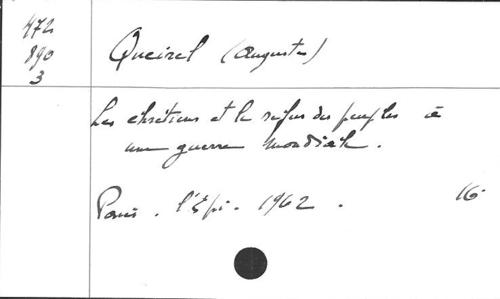 472
890
3
Queirel (Auguste)
Les chrétiens et le refus des peuples à
une guerre mondiale.
Paris. l'Epi. 1962. 16